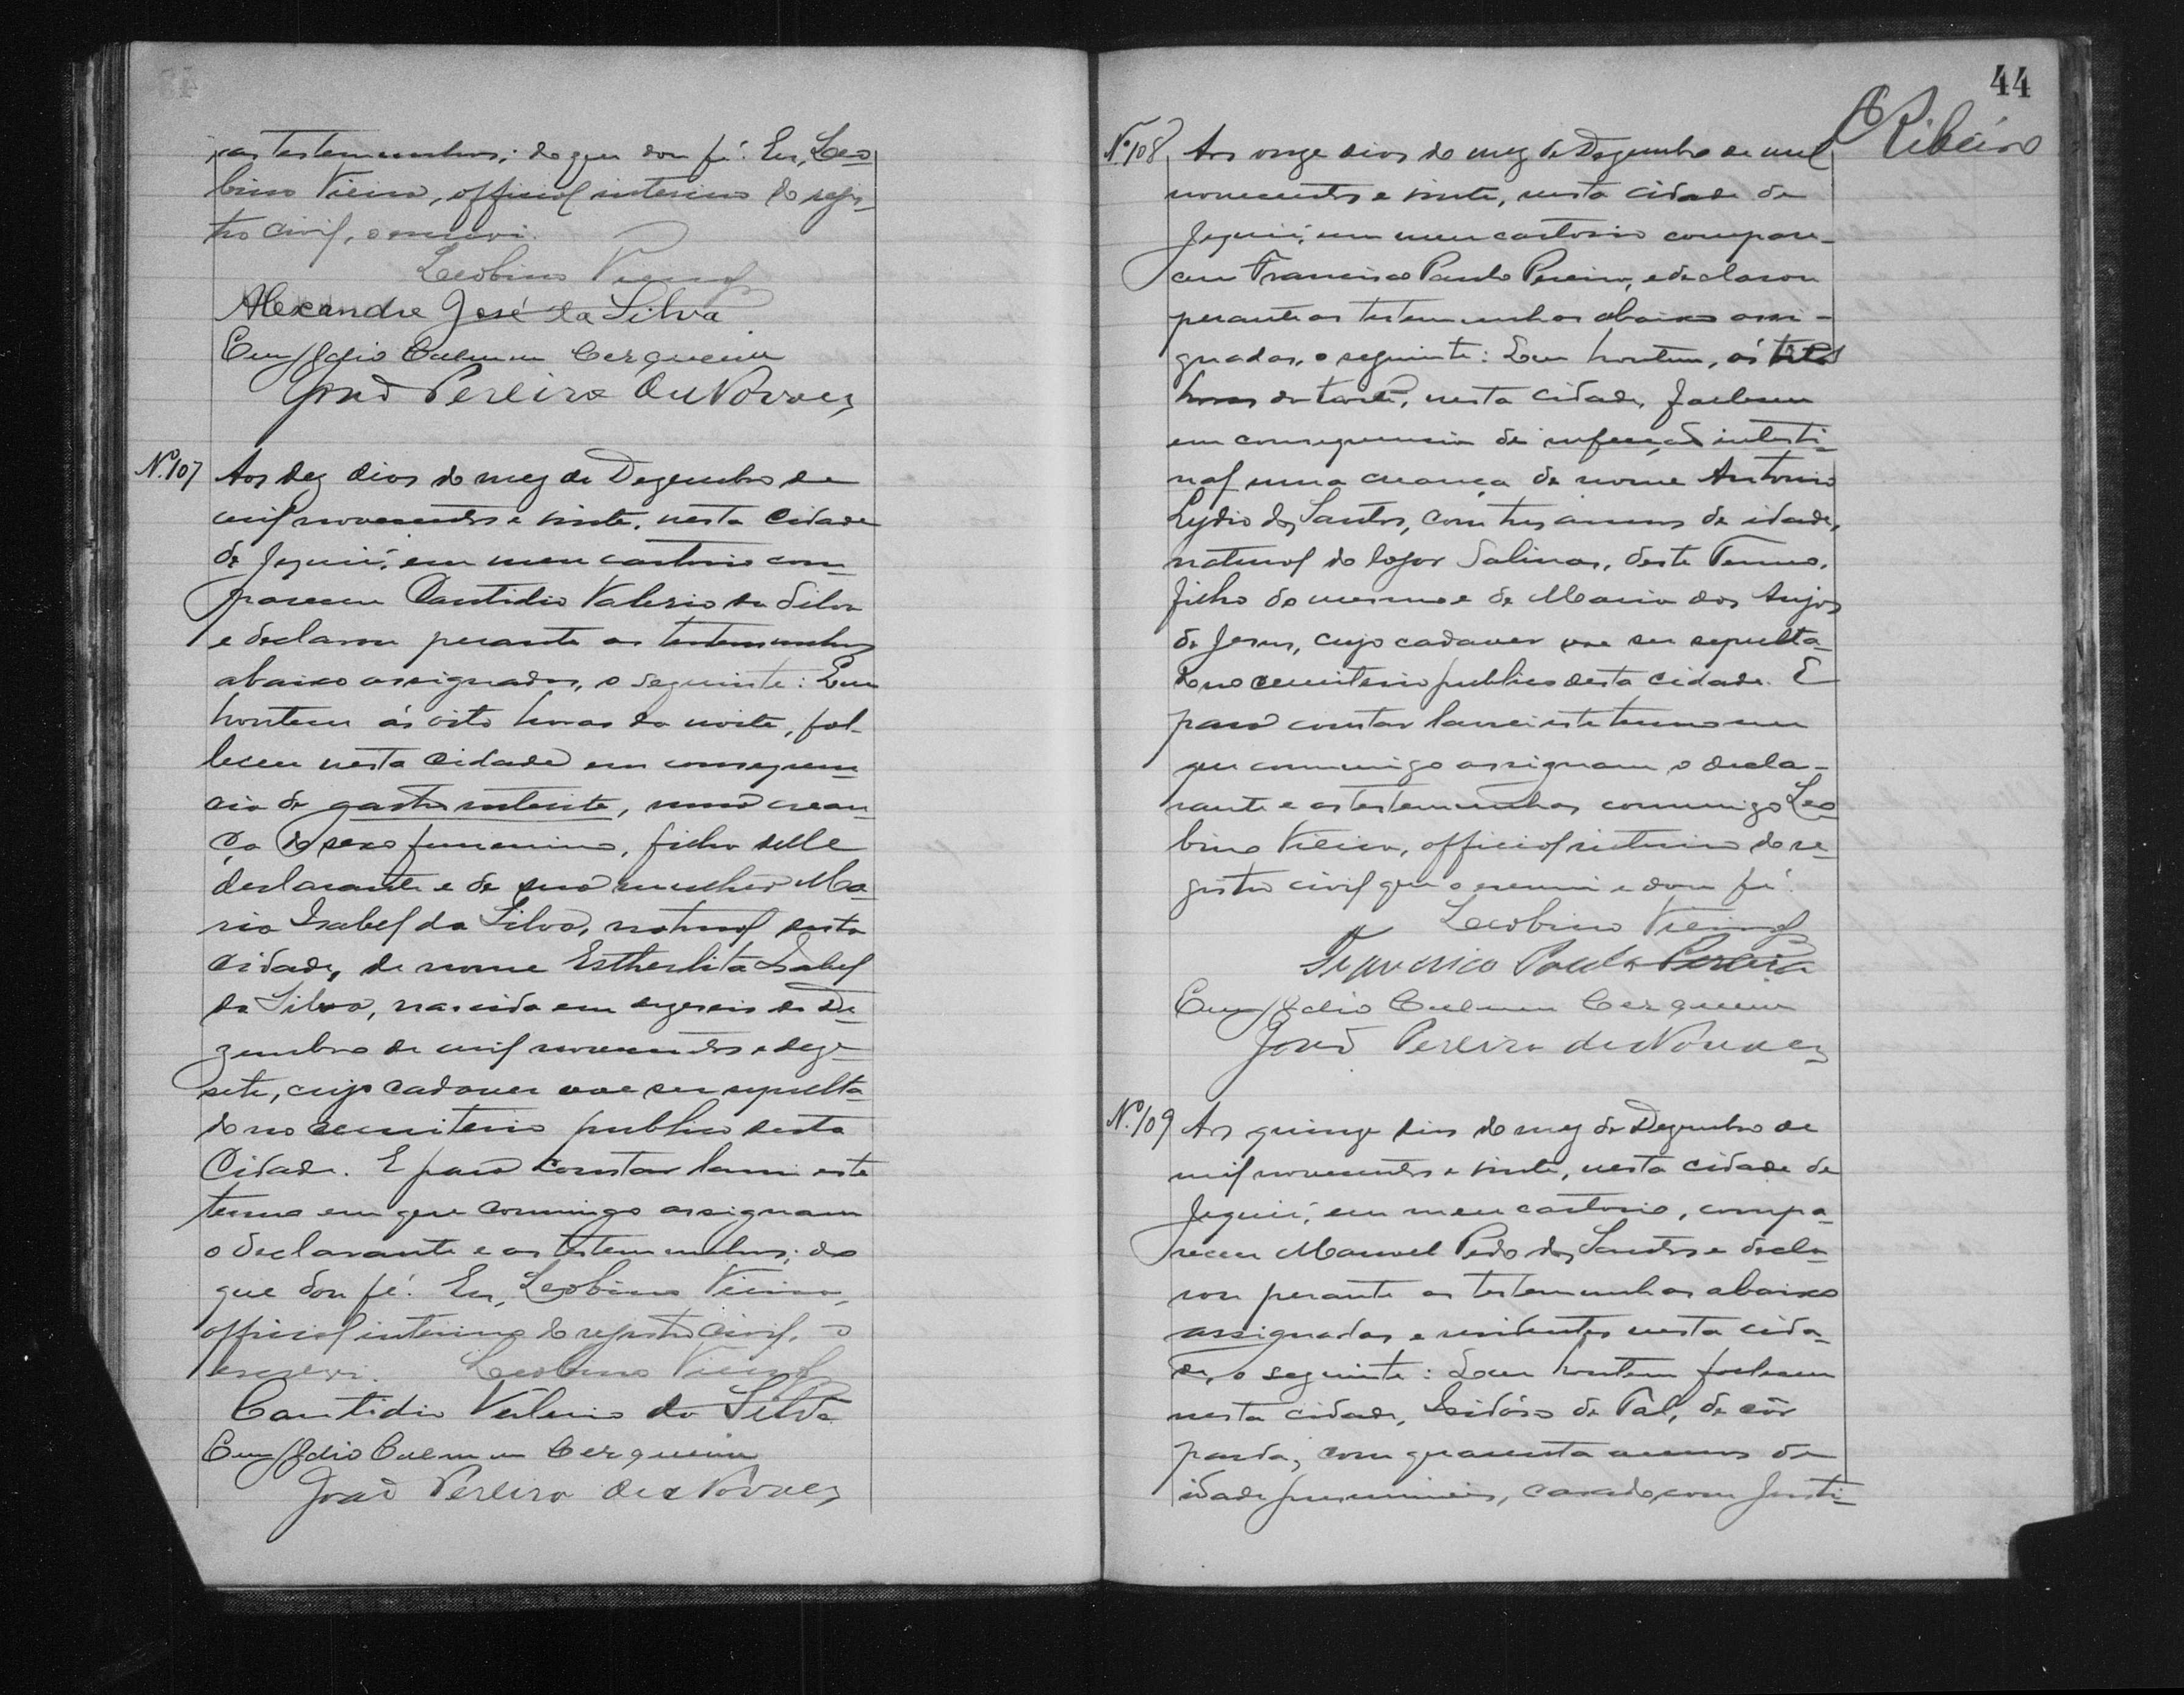 e as testemunhas; do que dou fé. Eu, Leo
bino Vieira, official interino do regis-
tro civil, o escrevi.
Leobino Vieira
Alexandre José da Silva
Cerqueira
João Pereira de Novaes
N. 107 Aos dez dias do mez de Dezembro de
mil novecentos e vinte, nesta cidade
de Jequié, em meu cartorio com-
pareceu Cantidio Valerio da Silva
e declarou perante as testemunhas
abaixo assignadas, o seguinte: Que
hontem ás oito horas da noite, fal-
leceu nesta cidade em consequen-
cia de gastro enterite, uma crean-
ça do sexo femenino, filha delle
declarante e de sua mulher Ma-
ria Isabel da Silva, natural desta
cidade, de nome Estherlita Isabel
da Silva, nascida em dezeseis de De-
zembro de mil novecentos e deze-
sete, cujo cadaver vae ser sepulta-
do no cemiterio publico desta
Cidade. E para constar lavrei este
termo em que commigo assignam
o declarante e as testemunhas; do
que dou fé. Eu, Leobino Vieira,
official interino do registro civil, o
escrevi. Leobino Vieira
Cantidio Valerio da Silva
Cerqueira
João Pereira de Novaes
44
Ribeiro
N. 108 Aos onze dias do mez de Dezembro de mil
novecentos e vinte, nesta cidade de
Jequié, em meu cartorio compare-
ceu Francisco Paulo Pereira, e declarou
perante as testemunhas abaixo assi-
gnadas, o seguinte: Que hontem, ás
horas da tarde, nesta cidade, falleceu
em consequencia de infecção intesti-
nal uma creança de nome Antonio
Lydio dos Santos, com tres annos de idade,
natural do logar Salinas, deste Termo,
filho do mesmo e de Maria dos Anjos
de Jesus, cujo cadaver vae ser sepulta-
do no cemiterio publico desta cidade. E
para constar lavrei este termo em
que commigo assignam o decla-
rante e as testemunhas commigo Leo
bino Vieira, official interino do re-
gistro civil que o escrevi e dou fé.
Leobino Vieira
Francisco Paulo Pereira
Cerqueira
João Pereira de Novaes
N. 109 Aos quinze dias do mez de Dezembro de
mil novecentos e vinte, nesta cidade de
Jequié, em meu cartorio, compa-
receu Manoel Pedo dos Santos e decla-
rou perante as testemunhas abaixo
assignadas e residentes nesta cida-
de, o seguinte: Que hontem falleceu
nesta cidade, Isidóro de Tal, de côr
parda, com quarenta annos de
idade presumiveis, casado com Justi-